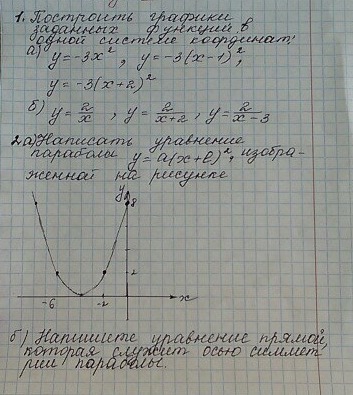 1. Построить графики
заданных функций в
одной системе координат:
а) y = -3x², y = -3(x-1)²,
y = -3(x+2)²
б) y = 2/x, y = 2/(x+2), y = 2/(x-3)
2.а) Написать уравнение
параболы y = a(x+l)², изобра-
женной на рисунке
y
8
2
-6 -2 x
б) Напишите уравнение прямой,
которая служит осью симмет
рии параболы.